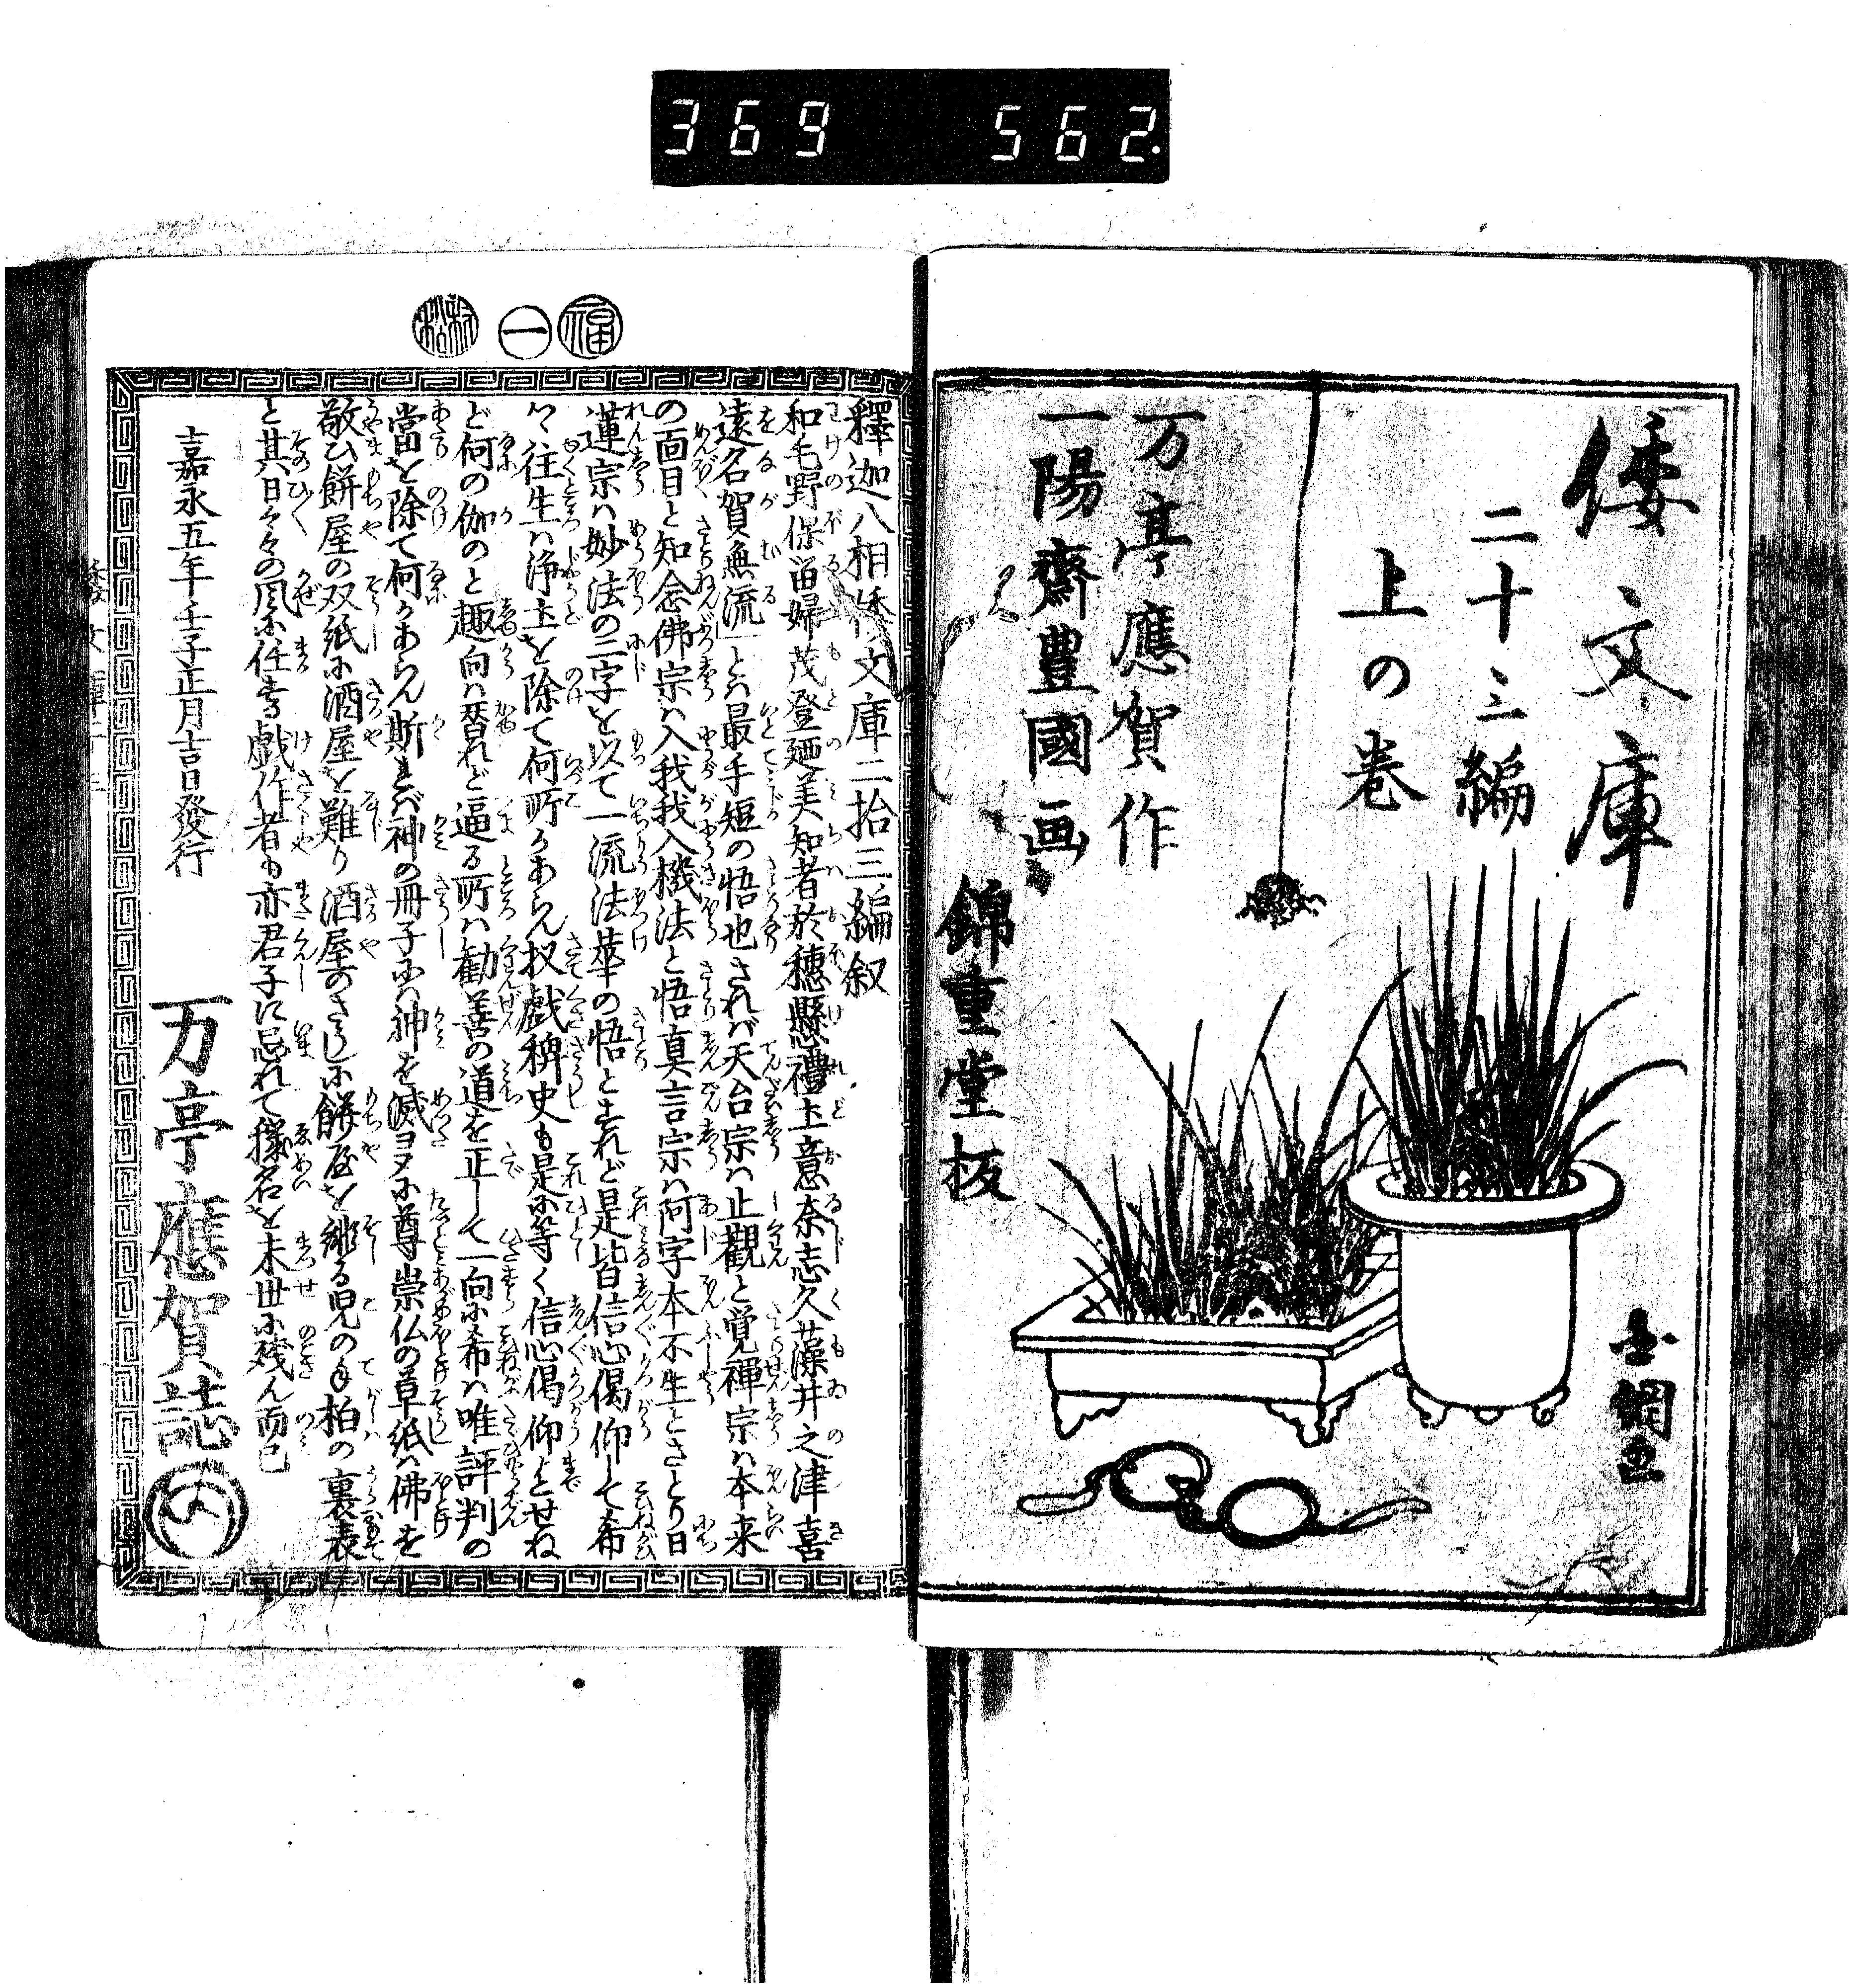 369 562.
倭文庫
二十三編
上の巻
万亭應賀作
一陽齋豊國画
錦重堂板
玉綱画
福
一
釋迦八相倭文庫二拾三編叙
和毛野保留婦茂登廼美知者於穗懸禮土意奈志久藻井之津喜
遠名賀無流」とハ最手短の悟也されバ天台宗ハ止觀と覚禪宗ハ本来
の面目と知念佛宗ハ入我我入機法と悟真言宗ハ阿字本不生とさとり日
蓮宗ハ妙法の二字を以て一流法華の悟とされど是皆信心偈仰して希
く往生ハ浄土を除て何所かあらん扨戯稗史も是に等く信心偈仰とせね
ど何の伽のと趣向ハ替れど逼る所ハ勧善の道を正して一向に希ハ唯評判の
當を除て何かあらん斯れバ神の冊子にハ神を滅ヨタに尊崇仏の草紙ハ佛を
敬ひ餅屋の双紙に酒屋を難り酒屋のさうしに餅屋を誹る児の手柏の裏表
と其日々々の風に任する戯作者も亦君子に忌れて穢名を末世に残ん而已
嘉永五年壬子正月吉日發行
万亭應賀誌